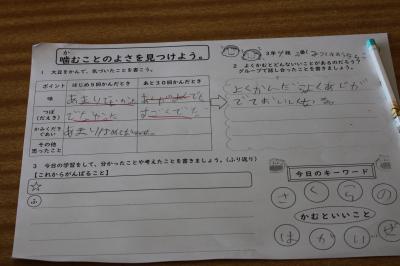 か
噛むことのよさを見つけよう。
3年
1 大豆をかんで、気づいたことを書こう。
2 よくかむとどんないいことがあるのだろう?
グループで話し合ったことを書きましょう。
ポイント
はじめ5回かんだとき
あと30回かんだとき
味
つば
(だえき)
でなかった
すごくでた
かみくだき
ぐあい
その他
思ったこと
よくかんだらよくあじが
でておいしくなる。
3 今日の学習をして、分かったことや考えたことを書きましょう。(ふり返り)
【これからがんばること】
☆
ふ
今日のキーワード
さ く ら の
かむといいこと
は が い ぜ